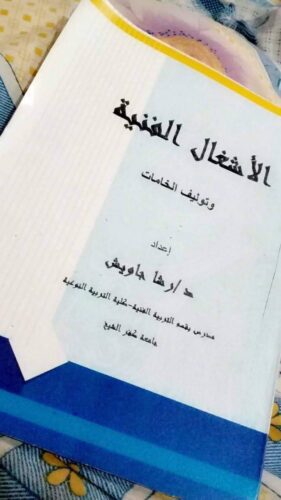 الأشغال الفنية
وتوليف الخامات
إعداد
د/رشا جاويش
مدرس بقسم التربية الفنية-كلية التربية النوعية
جامعة كفر الشيخ